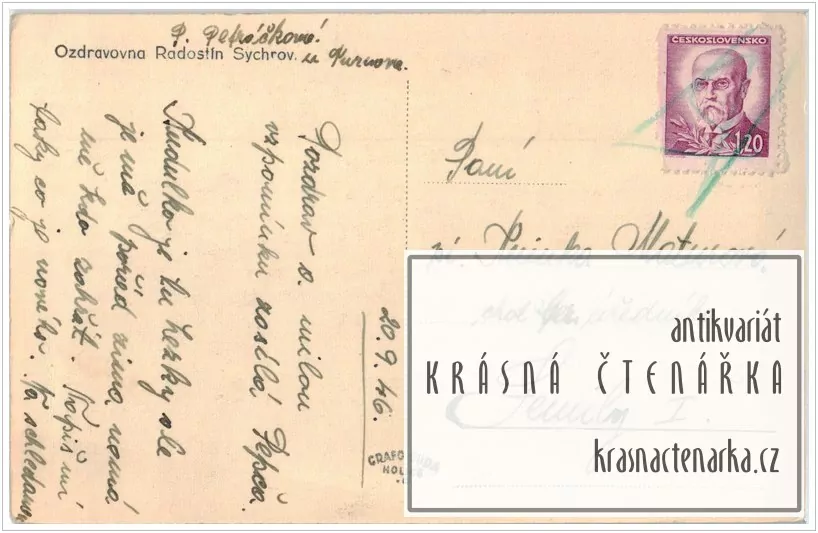 P. Petráčková
Ozdravovna Radostín Sychrov. u Turnova.
Pozdrav s. milou
vzpomínku zasílá Pepča.
Andulko je tu hezky ale
je mě pořád zima, nemá
mě kdo zahřát. Napiš mi
taky co je nového. Na schledanou
20.9.46.
GRAFO
HOL
ČESKOSLOVENSKO
1,20
Paní
Matunová
Semily I.
antikvariát
KRÁSNÁ ČTENÁŘKA
krasnactenarka.cz